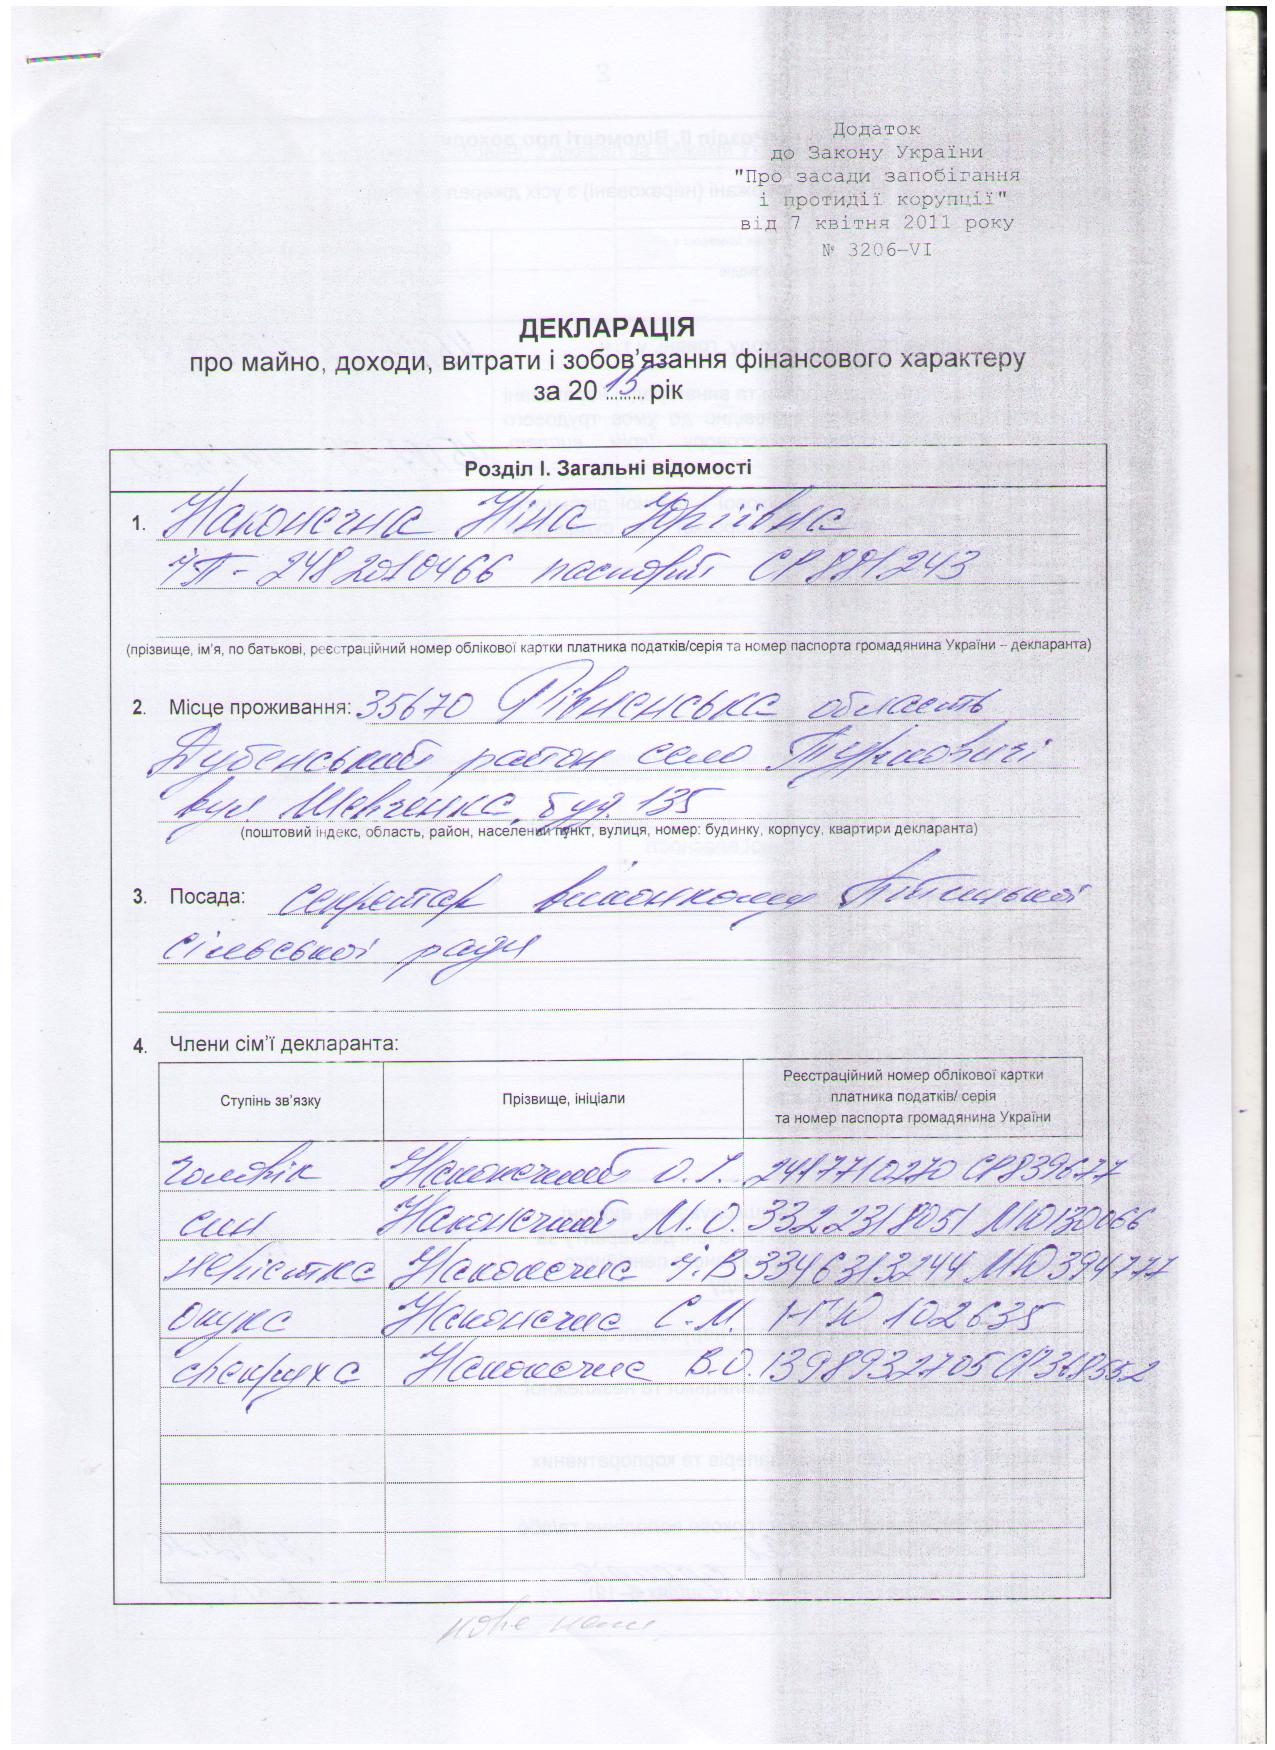 Додаток
до Закону України
"Про засади запобігання
і протидії корупції"
від 7 квітня 2011 року
№ 3206-VI
ДЕКЛАРАЦІЯ
про майно, доходи, витрати і зобов’язання фінансового характеру
за 2015 рік
Розділ І. Загальні відомості
1. Наконечна Ніна Юріївна
ІП - 2482010466 паспорт СР 881243
(прізвище, ім’я, по батькові, реєстраційний номер облікової картки платника податків/серія та номер паспорта громадянина України – декларанта)
2. Місце проживання: 35670 Рівненська область
Дубенський район село
вул. Шевченка, буд. 135
(поштовий індекс, область, район, населений пункт, вулиця, номер: будинку, корпусу, квартири декларанта)
3. Посада: секретар виконкому
сільської ради
4. Члени сім’ї декларанта:
Ступінь зв’язку Прізвище, ініціали Реєстраційний номер облікової картки
платника податків/ серія
та номер паспорта громадянина України
чоловік Наконечний О.І. 2417710270 СР839677
син Наконечний М.О. 3322318051 МЮ130066
невістка Наконечна І.В 3346313244 МЮ394777
онука Наконечна С.М. 1-ГЮ 102635
свекруха Наконечна В.О. 1398932705 СР368552